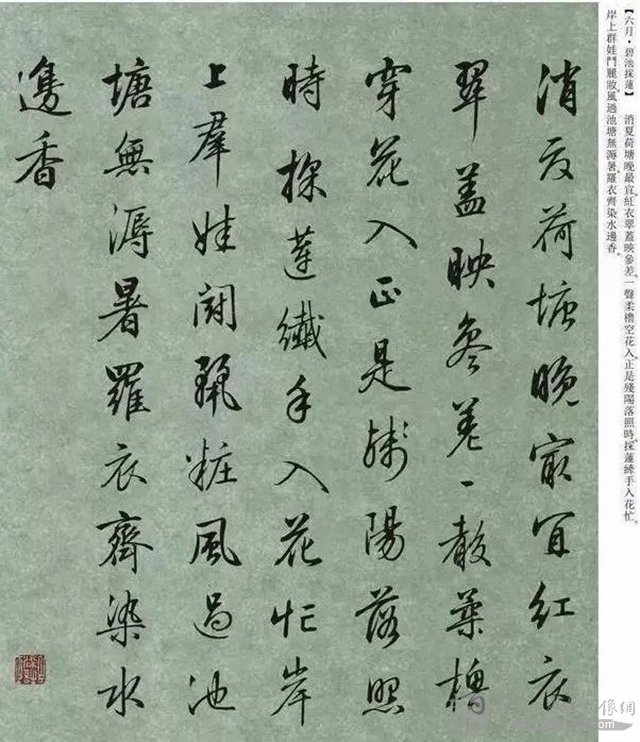 【六月·碧池採蓮】 消夏荷塘晚最宜。紅衣翠蓋映參差。一聲柔櫓空花入。正是殘陽落照時。採蓮纖手入花忙。
岸上群娃鬥麗妝。風過池塘無溽暑。羅衣齊染水邊香。
消夏荷塘晚最宜紅衣
翠蓋映參差一聲柔櫓
穿花入正是殘陽落照
時採蓮纖手入花忙岸
上羣娃鬪麗粧風過池
塘無溽暑羅衣齊染水
邊香
像網